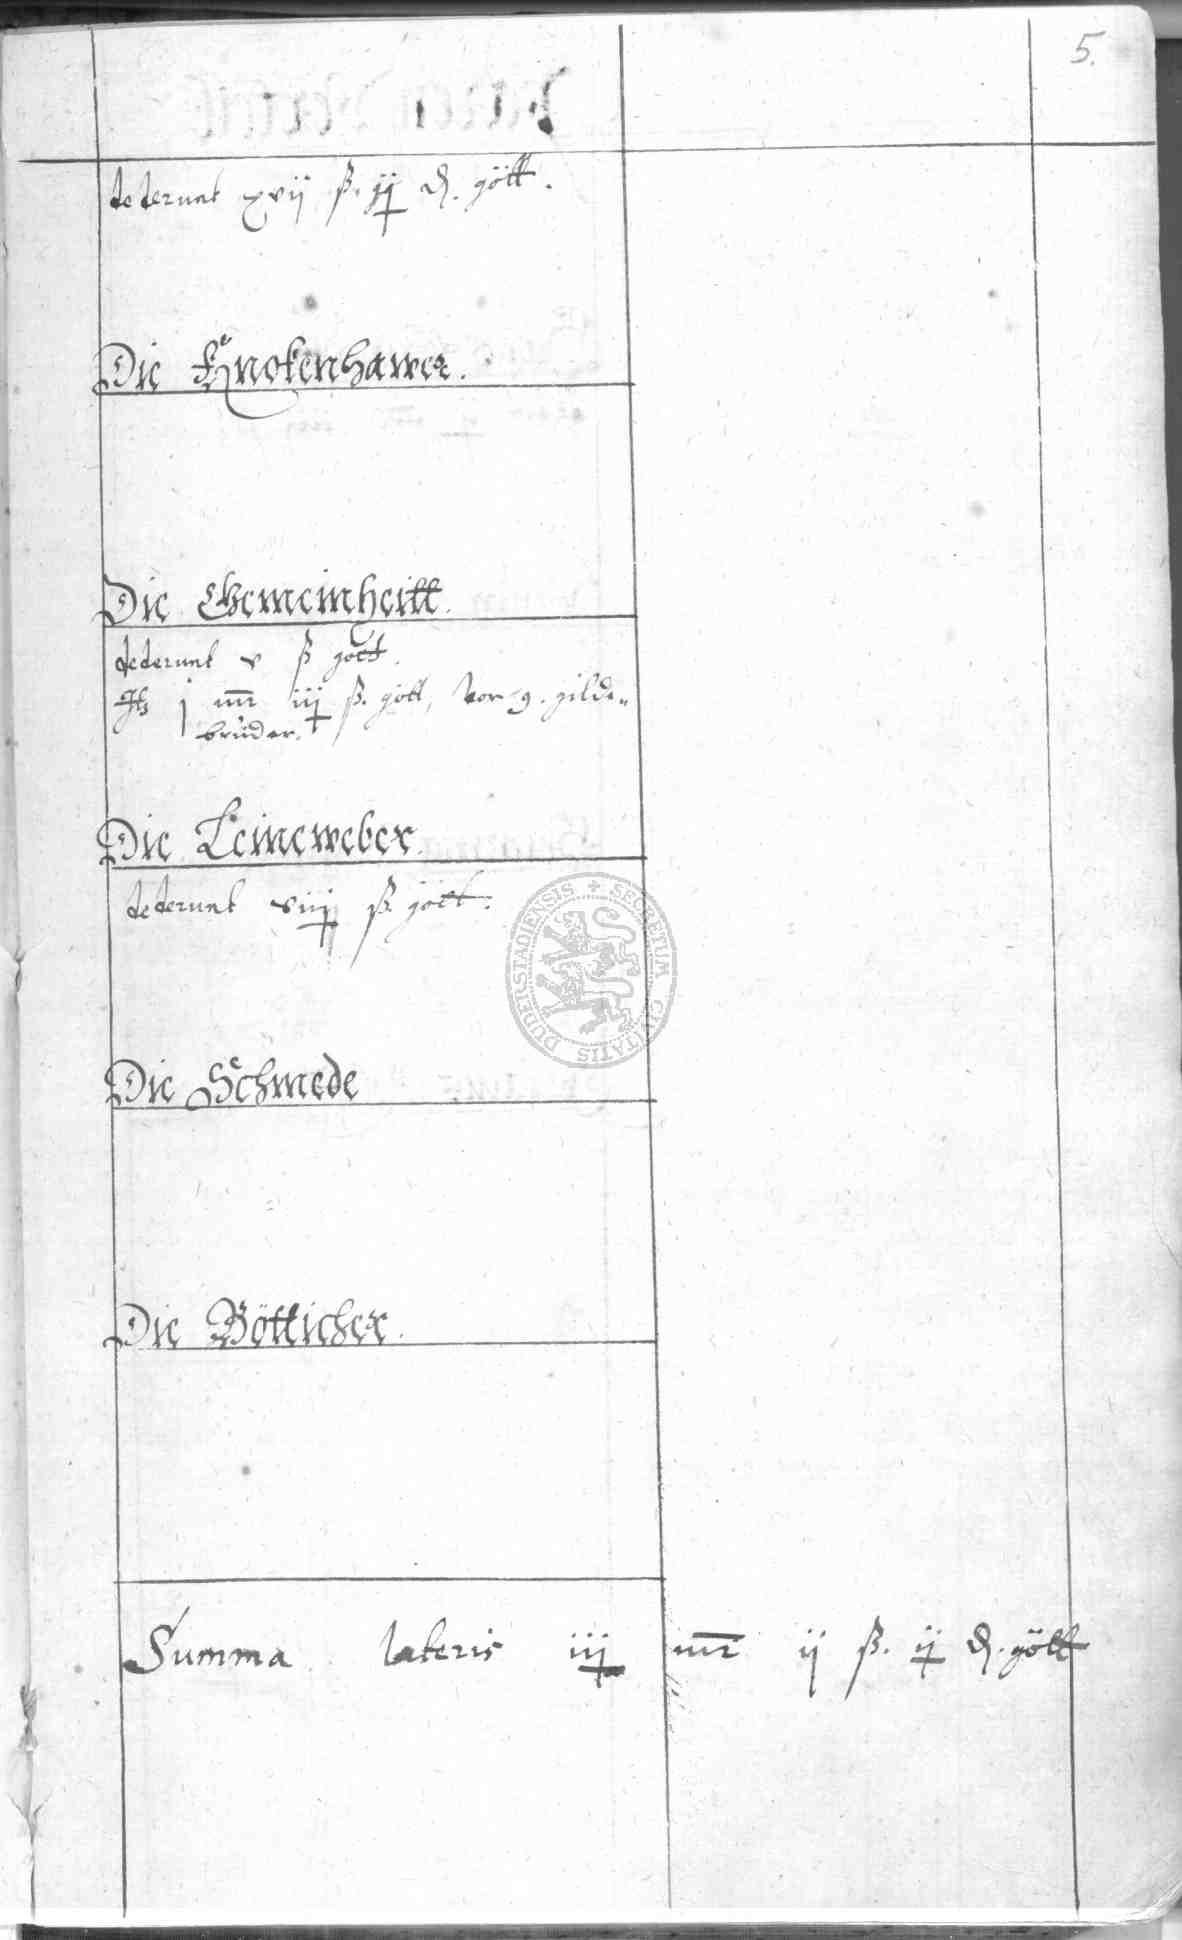 5.
dederunt xvij ß. ij ₰. gött.
Die Knokenhawer.
Die Gemeinheitt.
dederunt v ß gött.
It j mr iij ß. gött, vor 9. gilde„
brüder.
Die Leineweber.
dederunt viij ß. gött.
Die Schmede
Die Bötticher.
Summa lateris iij mr ij ß. ij ₰. gött
SECRETUM CIVITATIS DUDERSTADIENSIS